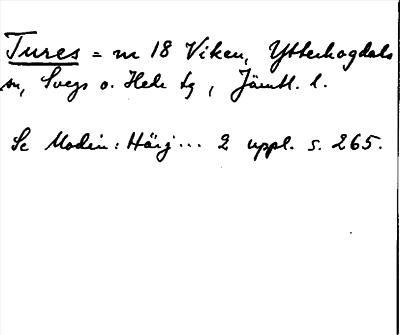 Tures = n 18 Viken, Ytterhogdals
sn, Svegs o. Hede tg, Jämtl. l.
Se Modin: Härj... 2 uppl. s. 265.